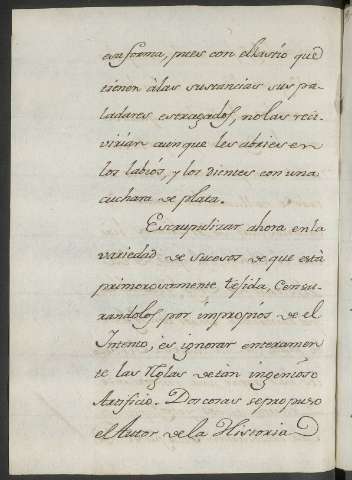 esa forma, pues con el astio que
tienen à las sustancias sus pa-
ladares estragados, no las reci-
virian aunque les abriesen
los labios, y los dientes con una
cuchara de plata.
Escrupulizar ahora en la
variedad de sucesos de que està
primorosamente tejida, Censu-
randolos por impropios de el
Intento, es ignorar enteramen-
te las Reglas de tan ingenioso
Artificio. Dos cosas se propuso
el Autor de la Historia